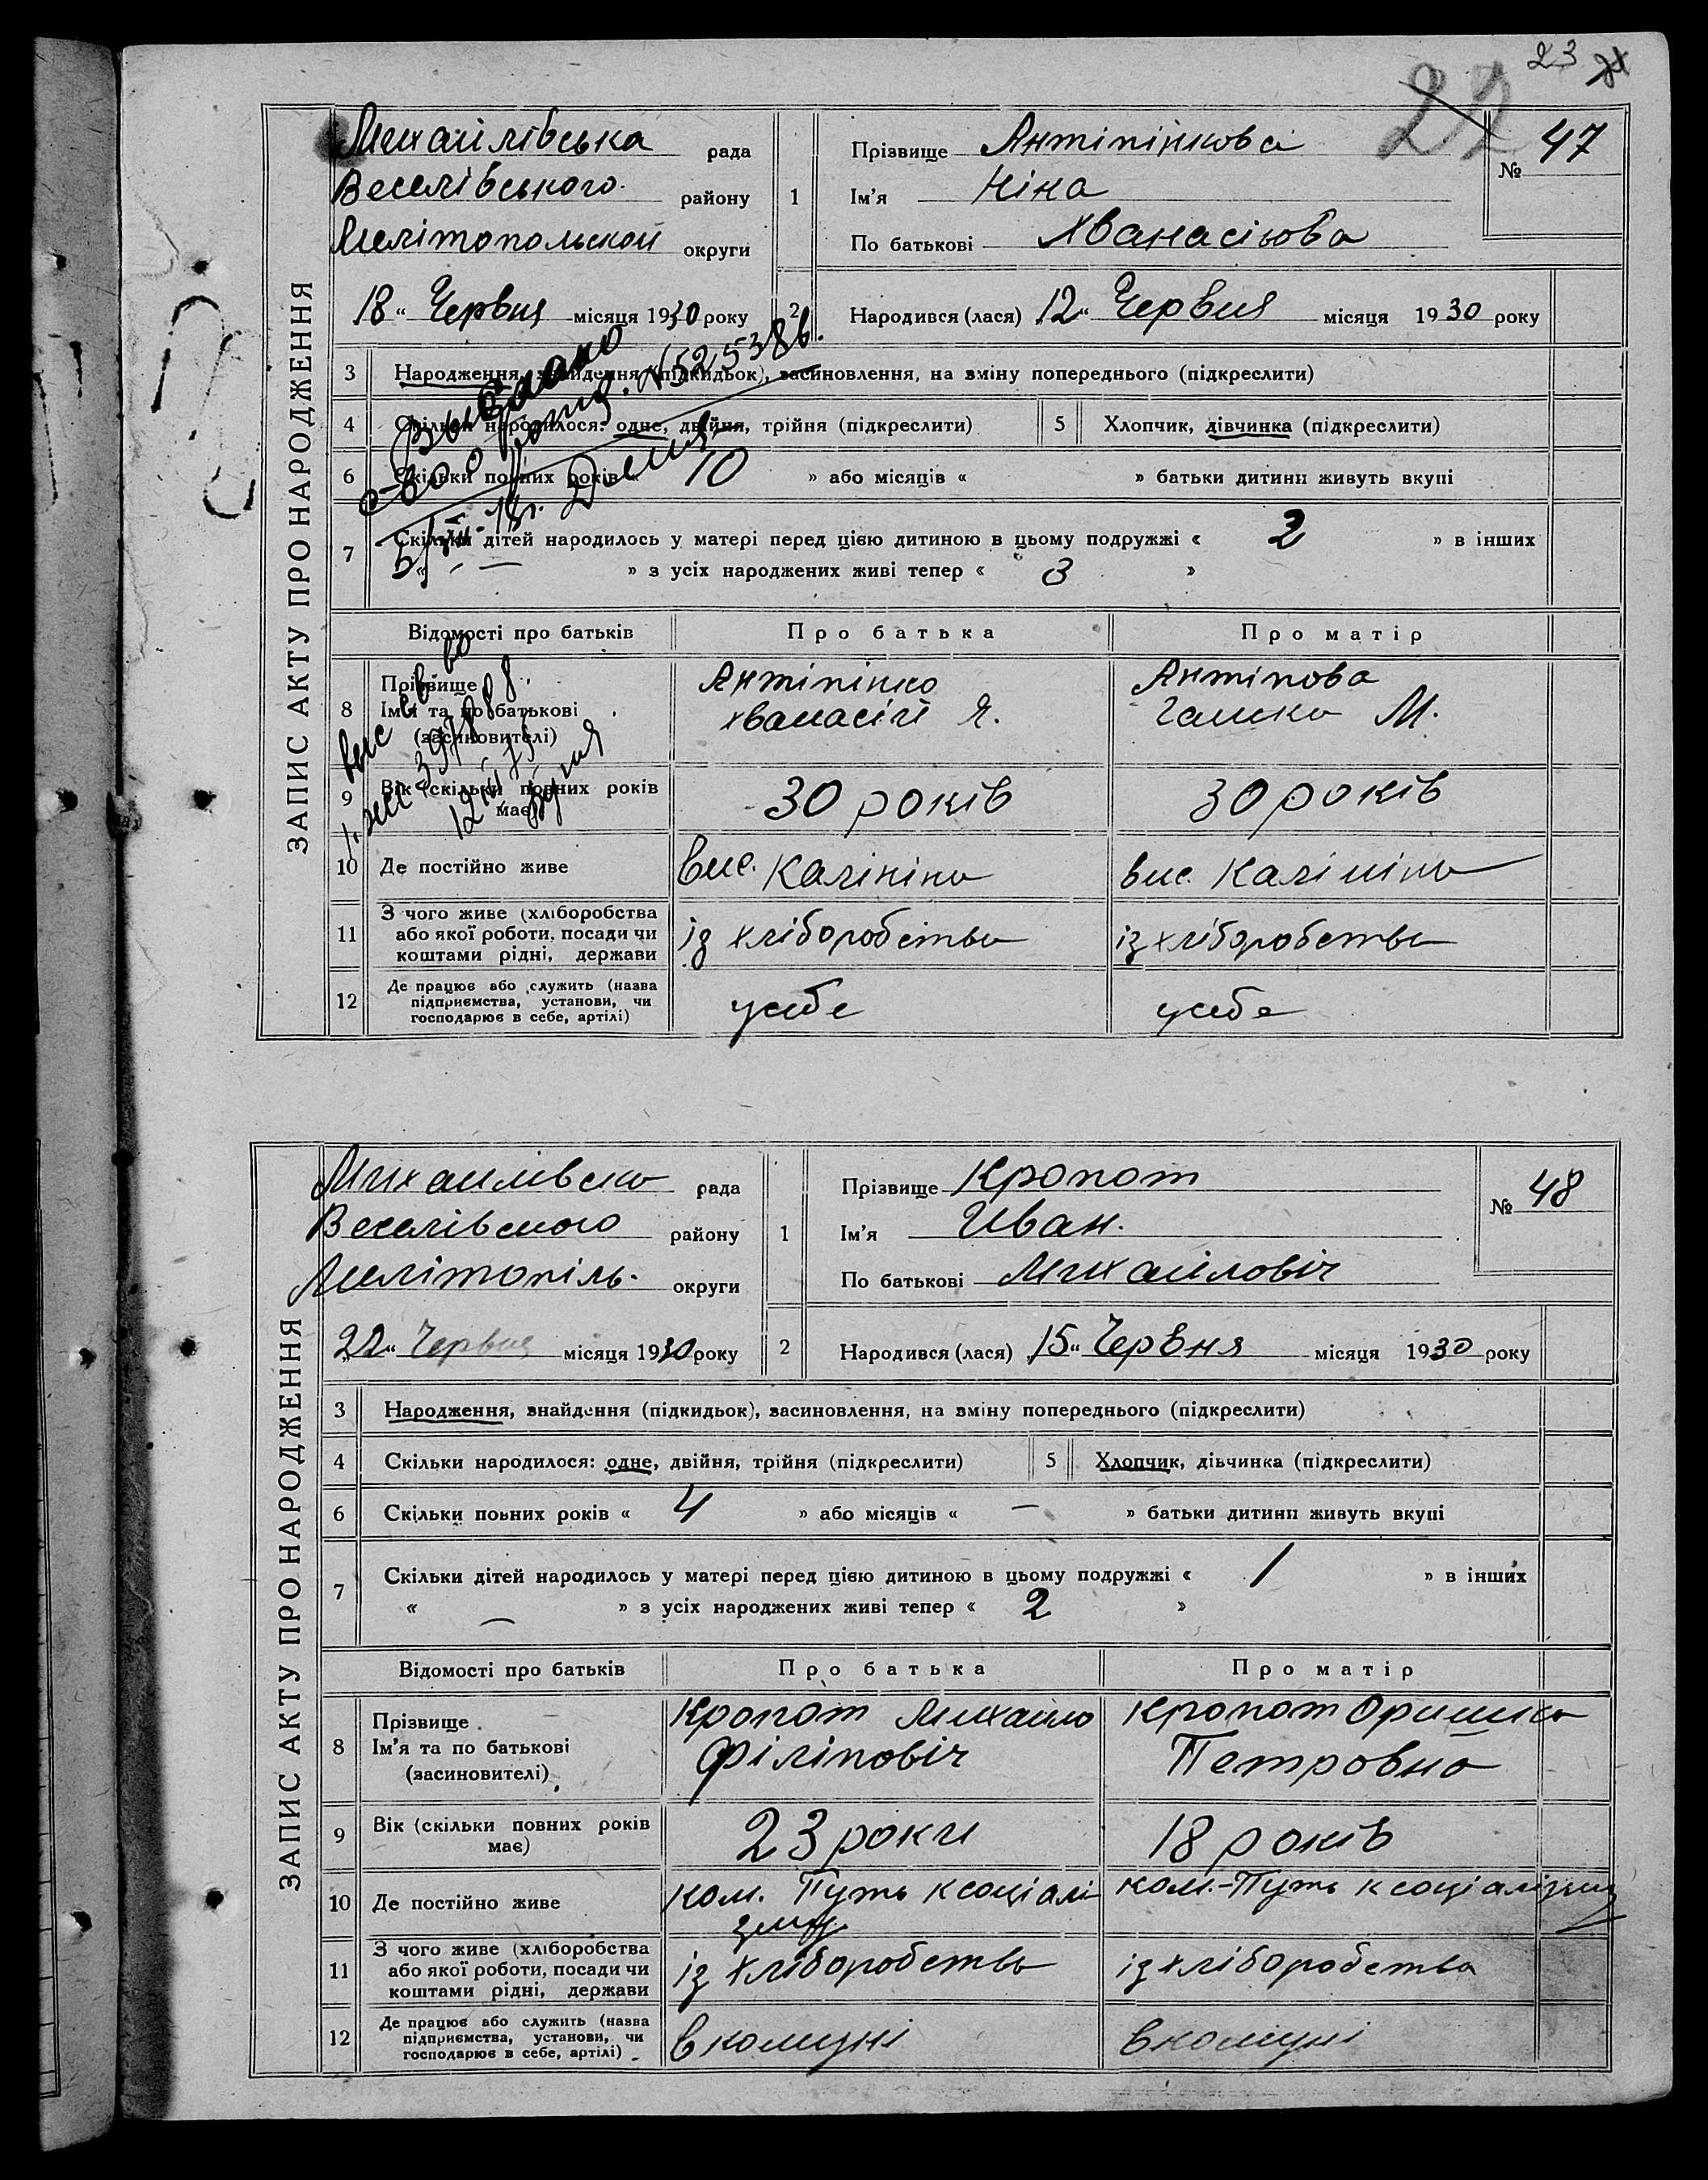 23
22
ЗАПИС АКТУ ПРО НАРОДЖЕННЯ
Михайлівська рада
Веселівського району
Мелітопольской округи
18 “ Червня місяця 1930 року
1
Прізвище Антіпінкова
Ім'я Ніна
По батькові Хванасіівва
№ 47
2 Народився (лася) 12 “ Червня місяця 1930 року
3 Народження, знайдення (підкидьок), засиновлення, на зміну попереднього (підкреслити)
4 Скільки народилося: одне, двійня, трійня (підкреслити) 5 Хлопчик, дівчинка (підкреслити)
6 Скільки повних років « 10 » або місяців « » батьки дитини живуть вкупі
7 Скільки дітей народилось у матері перед цією дитиною в цьому подружжі « 2 » в інших
« — » з усіх народжених живі тепер « 3 »
Выдано
с-во о рожд. № 525386.
Відомості про батьків Про батька Про матір
8 Прізвище
Ім'я та по батькові
(засиновителі)
Антіпінко
Хванасій Я.
Антіпова
Галика М.
9 Вік (скільки повних років має) 30 років 30 років
10 Де постійно живе вис. Калініна вис. Калініна
11 З чого живе (хліборобства
або якої роботи, посади чи
коштами рідні, держави
із хліборобства із хліборобства
12 Де працює або служить (назва
підприємства, установи, чи
господарює в себе, артілі)
усебе усебе
ЗАПИС АКТУ ПРО НАРОДЖЕННЯ
Михайлівська рада
Веселівського району
Мелітопіль. округи
22 “ Червня місяця 1930 року
1
Прізвище Кропот
Ім'я Иван.
По батькові Михайловіч
№ 48
2 Народився (лася) 15 “ Червня місяця 1930 року
3 Народження, знайдення (підкидьок), засиновлення, на зміну попереднього (підкреслити)
4 Скільки народилося: одне, двійня, трійня (підкреслити) 5 Хлопчик, дівчинка (підкреслити)
6 Скільки повних років « 4 » або місяців « — » батьки дитини живуть вкупі
7 Скільки дітей народилось у матері перед цією дитиною в цьому подружжі « 1 » в інших
« — » з усіх народжених живі тепер « 2 »
Відомості про батьків Про батька Про матір
8 Прізвище
Ім'я та по батькові
(засиновителі)
Кропот Михайло
Філіповіч
Кропот Оришка
Петровна
9 Вік (скільки повних років
має)
23 роки 18 років
10 Де постійно живе
ком. Путь к соціалі
зму
ком.-Путь к соціалізму
11 З чого живе (хліборобства
або якої роботи, посади чи
коштами рідні, держави
із хліборобства із хліборобства
12 Де працює або служить (назва
підприємства, установи, чи
господарює в себе, артілі)
в комуні в комуні